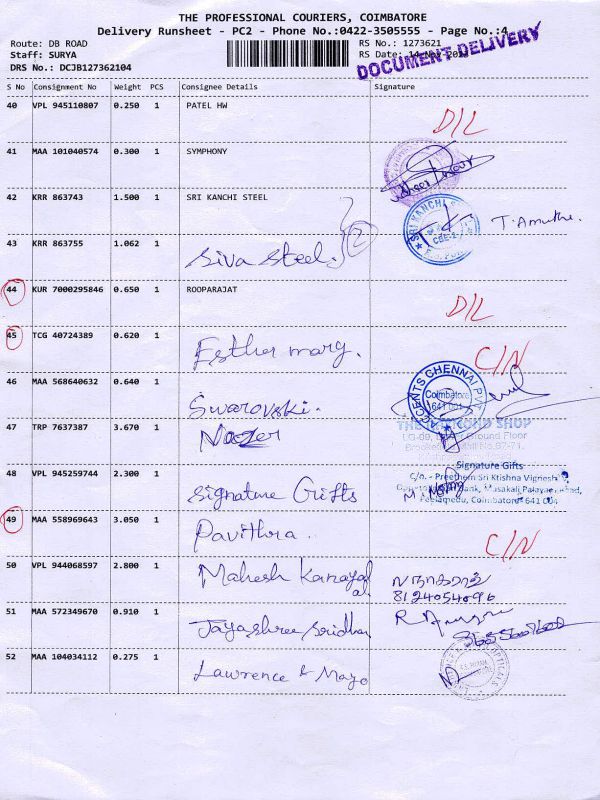 THE PROFESSIONAL COURIERS, COIMBATORE
Delivery Runsheet - PC2 - Phone No.:0422-3505555 - Page No.:4
Route: DB ROAD
RS No.: 1273621
Staff: SURYA
RS Date: 14-Nov-
DOCUMENT DELIVERY
DRS No.: DCJB127362104
S No Consignment No Weight PCS Consignee Details Signature
40 VPL 945110807 0.250 1 PATEL HW D/L
41 MAA 101040574 0.300 1 SYMPHONY
42 KRR 863743 1.500 1 SRI KANCHI STEEL
SRI KANCHI
CBE-2
T. Amutha.
43 KRR 863755 1.062 1 Siva Steel. 2
44 KUR 7000295846 0.650 1 ROOPARAJAT D/L
45 TCG 40724389 0.620 1 Esther mary. C/N
46 MAA 568640632 0.640 1 Swarovski.
ACCENTS CHENNAI PVT
Coimbatore
641 001
47 TRP 7637387 3.670 1 Nazer
THE SHOP
Ground Floor
48 VPL 945259744 2.300 1 Signature Gifts
Signature Gifts
C/o.- Preethem Sri Ktishna Vignesh
Bank, Masakali Palayam Road,
Peelamedu, Coimbatore- 641 004
49 MAA 558969643 3.050 1 Pavithra. C/N
50 VPL 944068597 2.800 1 Mahesh Kanayal
நாகராஜ்
8124054096
51 MAA 572349670 0.910 1 Jayashree Sridhar
52 MAA 104034112 0.275 1 Lawrence & Mayo